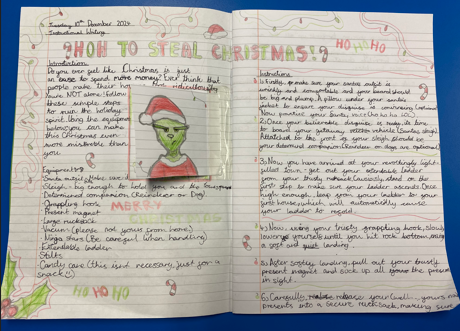 Tuesday 10th December 2024
Instructional Writing
HOW TO STEAL CHRISTMAS!
HO HO HO
Introduction
Do you ever feel like Christmas is just
an excuse to spend more money? Ever think that
people make their ridiculously
have NOT alone! Follow
these simple steps
to ruin the holiday
Using the equipment
below, you can make
this Christmas even
more miserable than
you
Equipment:
Sleigh - big enough to hold you and the
Determined companion (Reindeer or Dog)
Grappling hook
MERRY
Present magnet
CHRISTMAS
Large necksack
Vacuum (please not yours from home)
Ninja stars (Be careful when handling)
Extendable ladder
Stilts
Candy cane (this isn't necessary, just for a
snack)
HO HO HO
Instructions
1: Firstly, make sure your santa outfit is
wrinkly and comfortable and your beard should
be big and pillowy. A pillow under your santa's
jacket to ensure your disguise is convincing
Now practice your bouncy voice (ho ho ho lol)
2: Once your believable disguise is ready, its time
to board your getaway vehicle (Santas sleigh)
Attatched to the front of your sleigh should be
your determined companion. (Reindeer or dogs are optional)
3: Now you have arrived at your revoltingly light-
filled town - get out your extendable ladder
from your trusty ruksack. Cautiously, stand on the
first step to make sure your ladder is secure. Once
high enough, leap from your ladder to your
first house, which will automatically cause
your ladder to refold.
4: Now, using your trusty grappling hook, slowly
lower yourself until you hit rock bottom,
a soft and quiet landing.
5: After softly landing, pull out your trusty
present magnet and suck up all the presents
in sight.
6: Carefully, release your
presents into a secure ruck sack, making sure